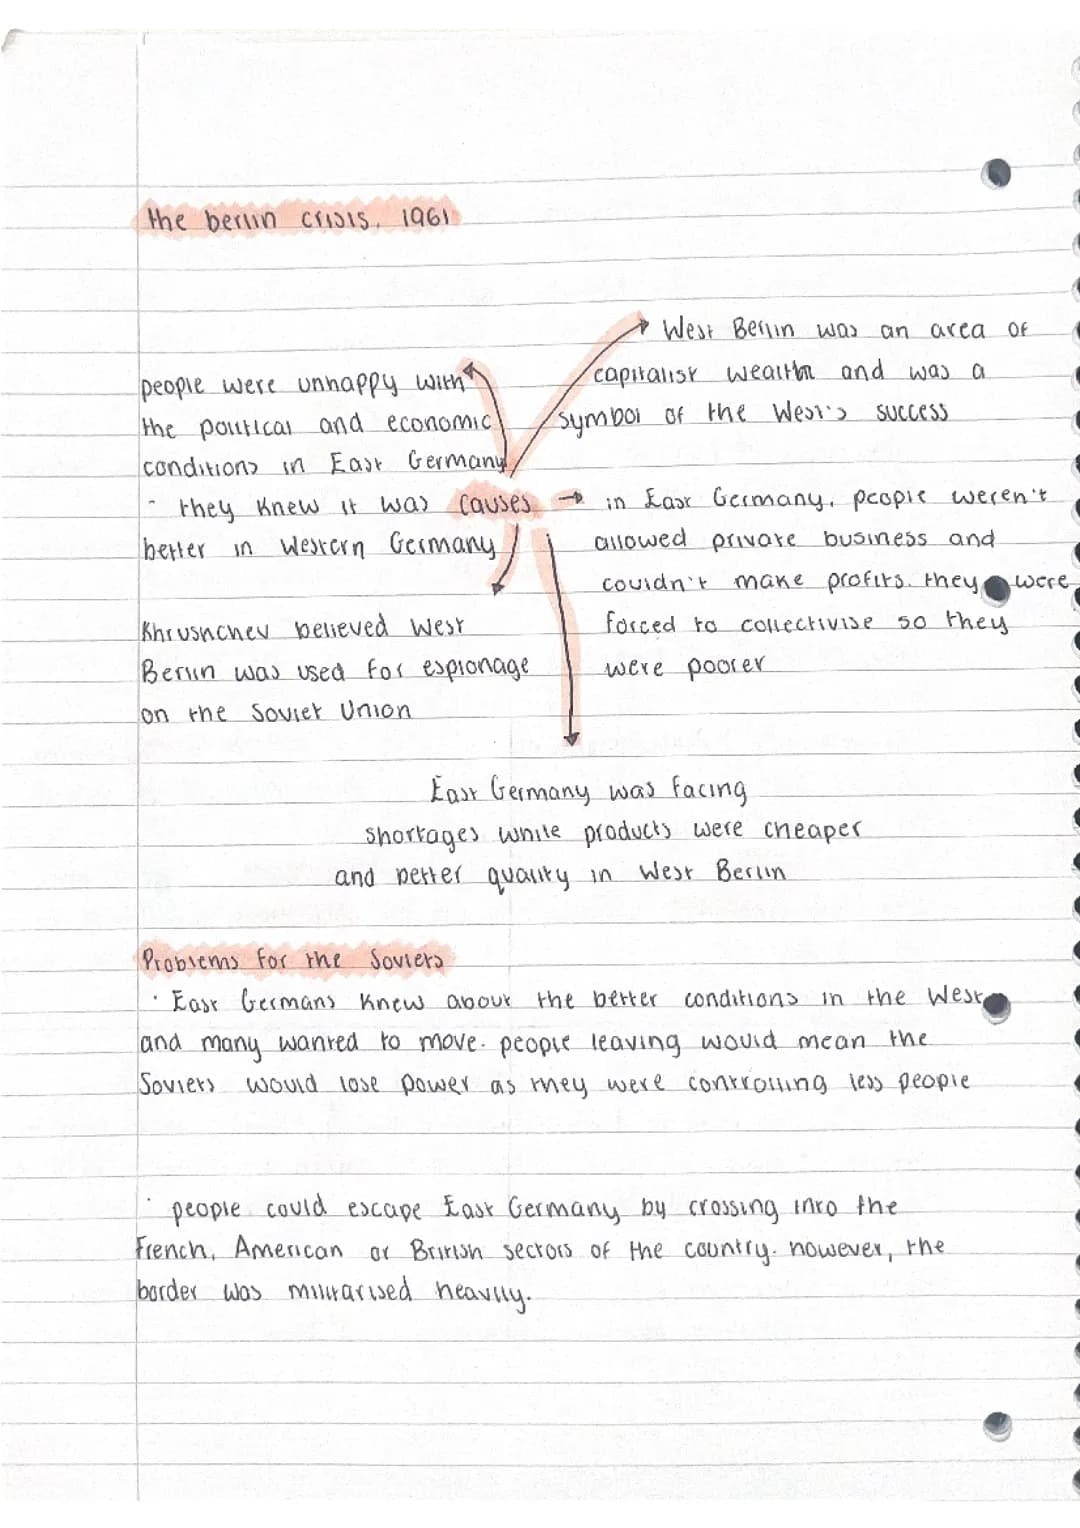 the berlin crisis, 1961
people were unhappy with
the political and economic
conditions in East Germany
- they knew it was
better in Western Germany
causes
→ West Berlin was an area of
capitalist wealth and was a
symbol of the West's success
→ in East Germany, people weren't
allowed private business and
couldn't make profits. they were
forced to collectivise so they
were poorer
Khrushchev believed West
Berlin was used for espionage
on the Soviet Union
East Germany was facing
shortages while products were cheaper
and better quality in West Berlin
Problems for the Soviets
· East Germans knew about the better conditions in the West
and many wanted to move. people leaving would mean the
Soviets would lose power as they were controlling less people
· people could escape East Germany by crossing into the
French, American or British sectors of the country. however, the
border was militarised heavily.